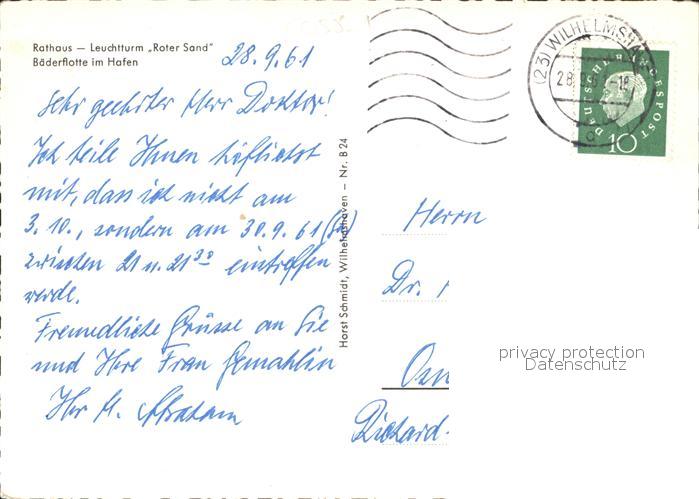 Rathaus — Leuchtturm „Roter Sand"
Bäderflotte im Hafen
28.9.61
Sehr geehrter Herr Doktor!
Ich teile Ihnen höflichst
mit, dass ich nicht am
3.10., sondern am 30.9.61
zwischen 21 u. 21³⁰ eintreffen
werde.
Freundliche Grüsse an Sie
und Ihre Frau Gemahlin
Ihr H.
Horst Schmidt, Wilhelmshaven — Nr. B 24
(23) WILHELMSHAV
28
DEUTSCHE BUNDESPOST
10
Herrn
Dr.
Richard-
privacy protection
Datenschutz